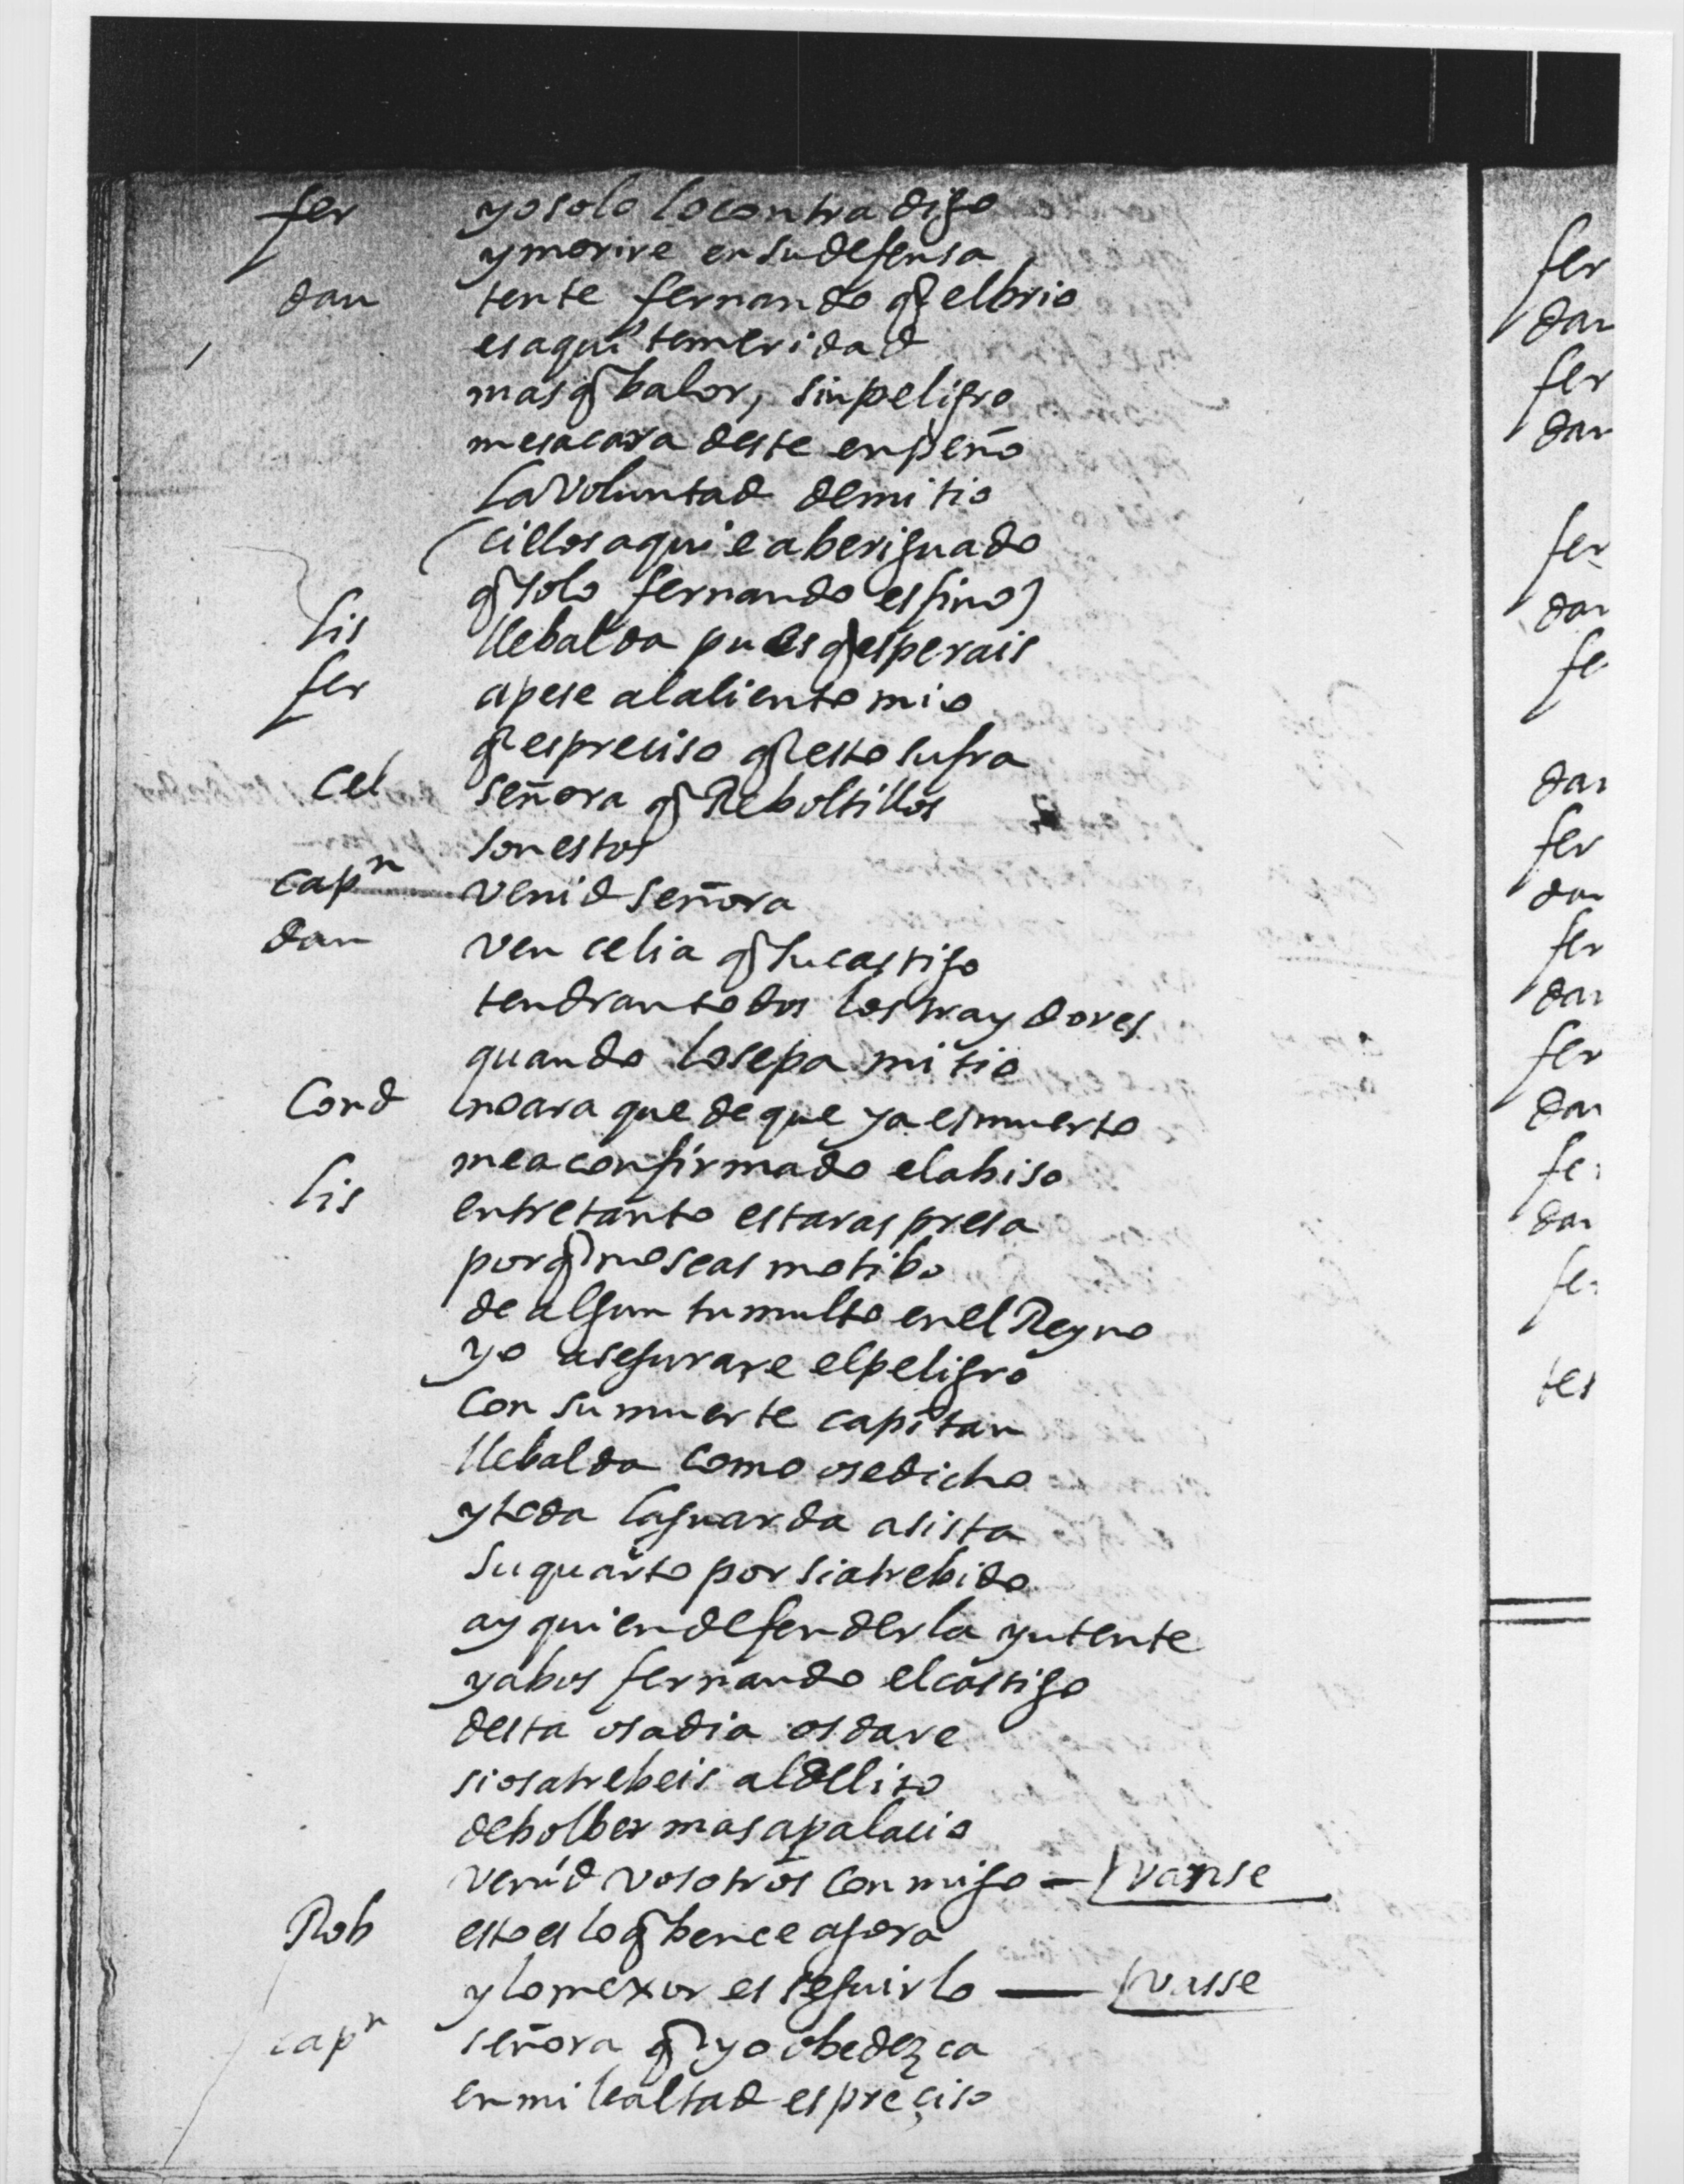 fer yo solo lo contra digo
y morire en su defensa
dan tente fernando q el brio
es aqui temeridad
mas q balor, sin peligro
me sacara deste enpeño
la voluntad de mi tio
(cielos aqui e aberiguado
q solo fernando es fino)
lis llebalda pues q esperais
fer a pese al aliento mio
q es preciso q esto sufra
cel señora q Reboltillos
son estos
capn venid señora
dan ven celia q su castigo
tendran todos los traydores
quando lo sepa mi tio
Cond no ara que de que ya es muerto
me a confirmado el abiso
lis entretanto estaras presa
porq no seas motibo
de algun tumulto en el Reyno
yo asegurare el peligro
con su muerte capitan
llebalda como os e dicho
y toda la guarda asista
su quarto por si atrebido
ay quien defenderla yntente
y a bos fernando el castigo
desta osadia os dare
si os atrebeis al delito
de bolber mas a palacio
venid vosotros conmigo — vanse
Rob esto es lo q bence agora
y lo mexor es seguirlo — vasse
capn señora q yo obedezca
en mi lealtad es preciso
fer
dan
fer
dan
fer
dan
fe
dan
fer
dan
fer
dan
fer
dan
fe
dan
fe